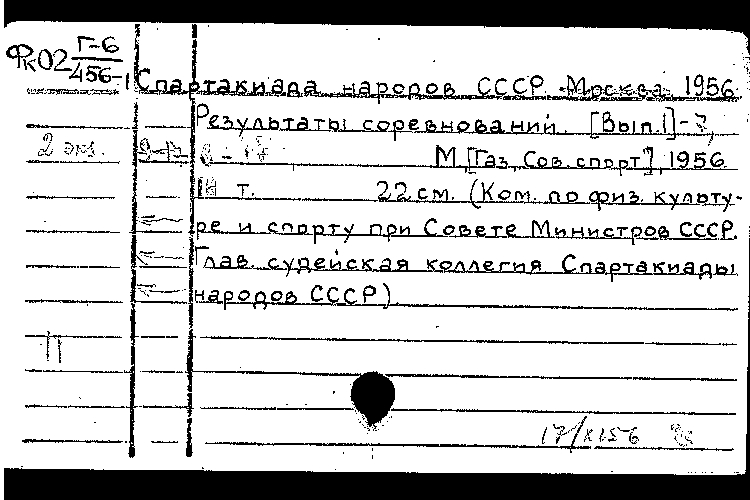 Фк02 Г-6
456-1
Спартакиада народов СССР. Москва. 1956.
Результаты соревнований. [Вып.1]-7,
2 экз.
М, [Газ. "Сов. спорт"], 1956.
т. 22 см. (Ком. по физ. культу-
ре и спорту при Совете Министров СССР.
Глав. судейская коллегия Спартакиады
народов СССР)
17/X156